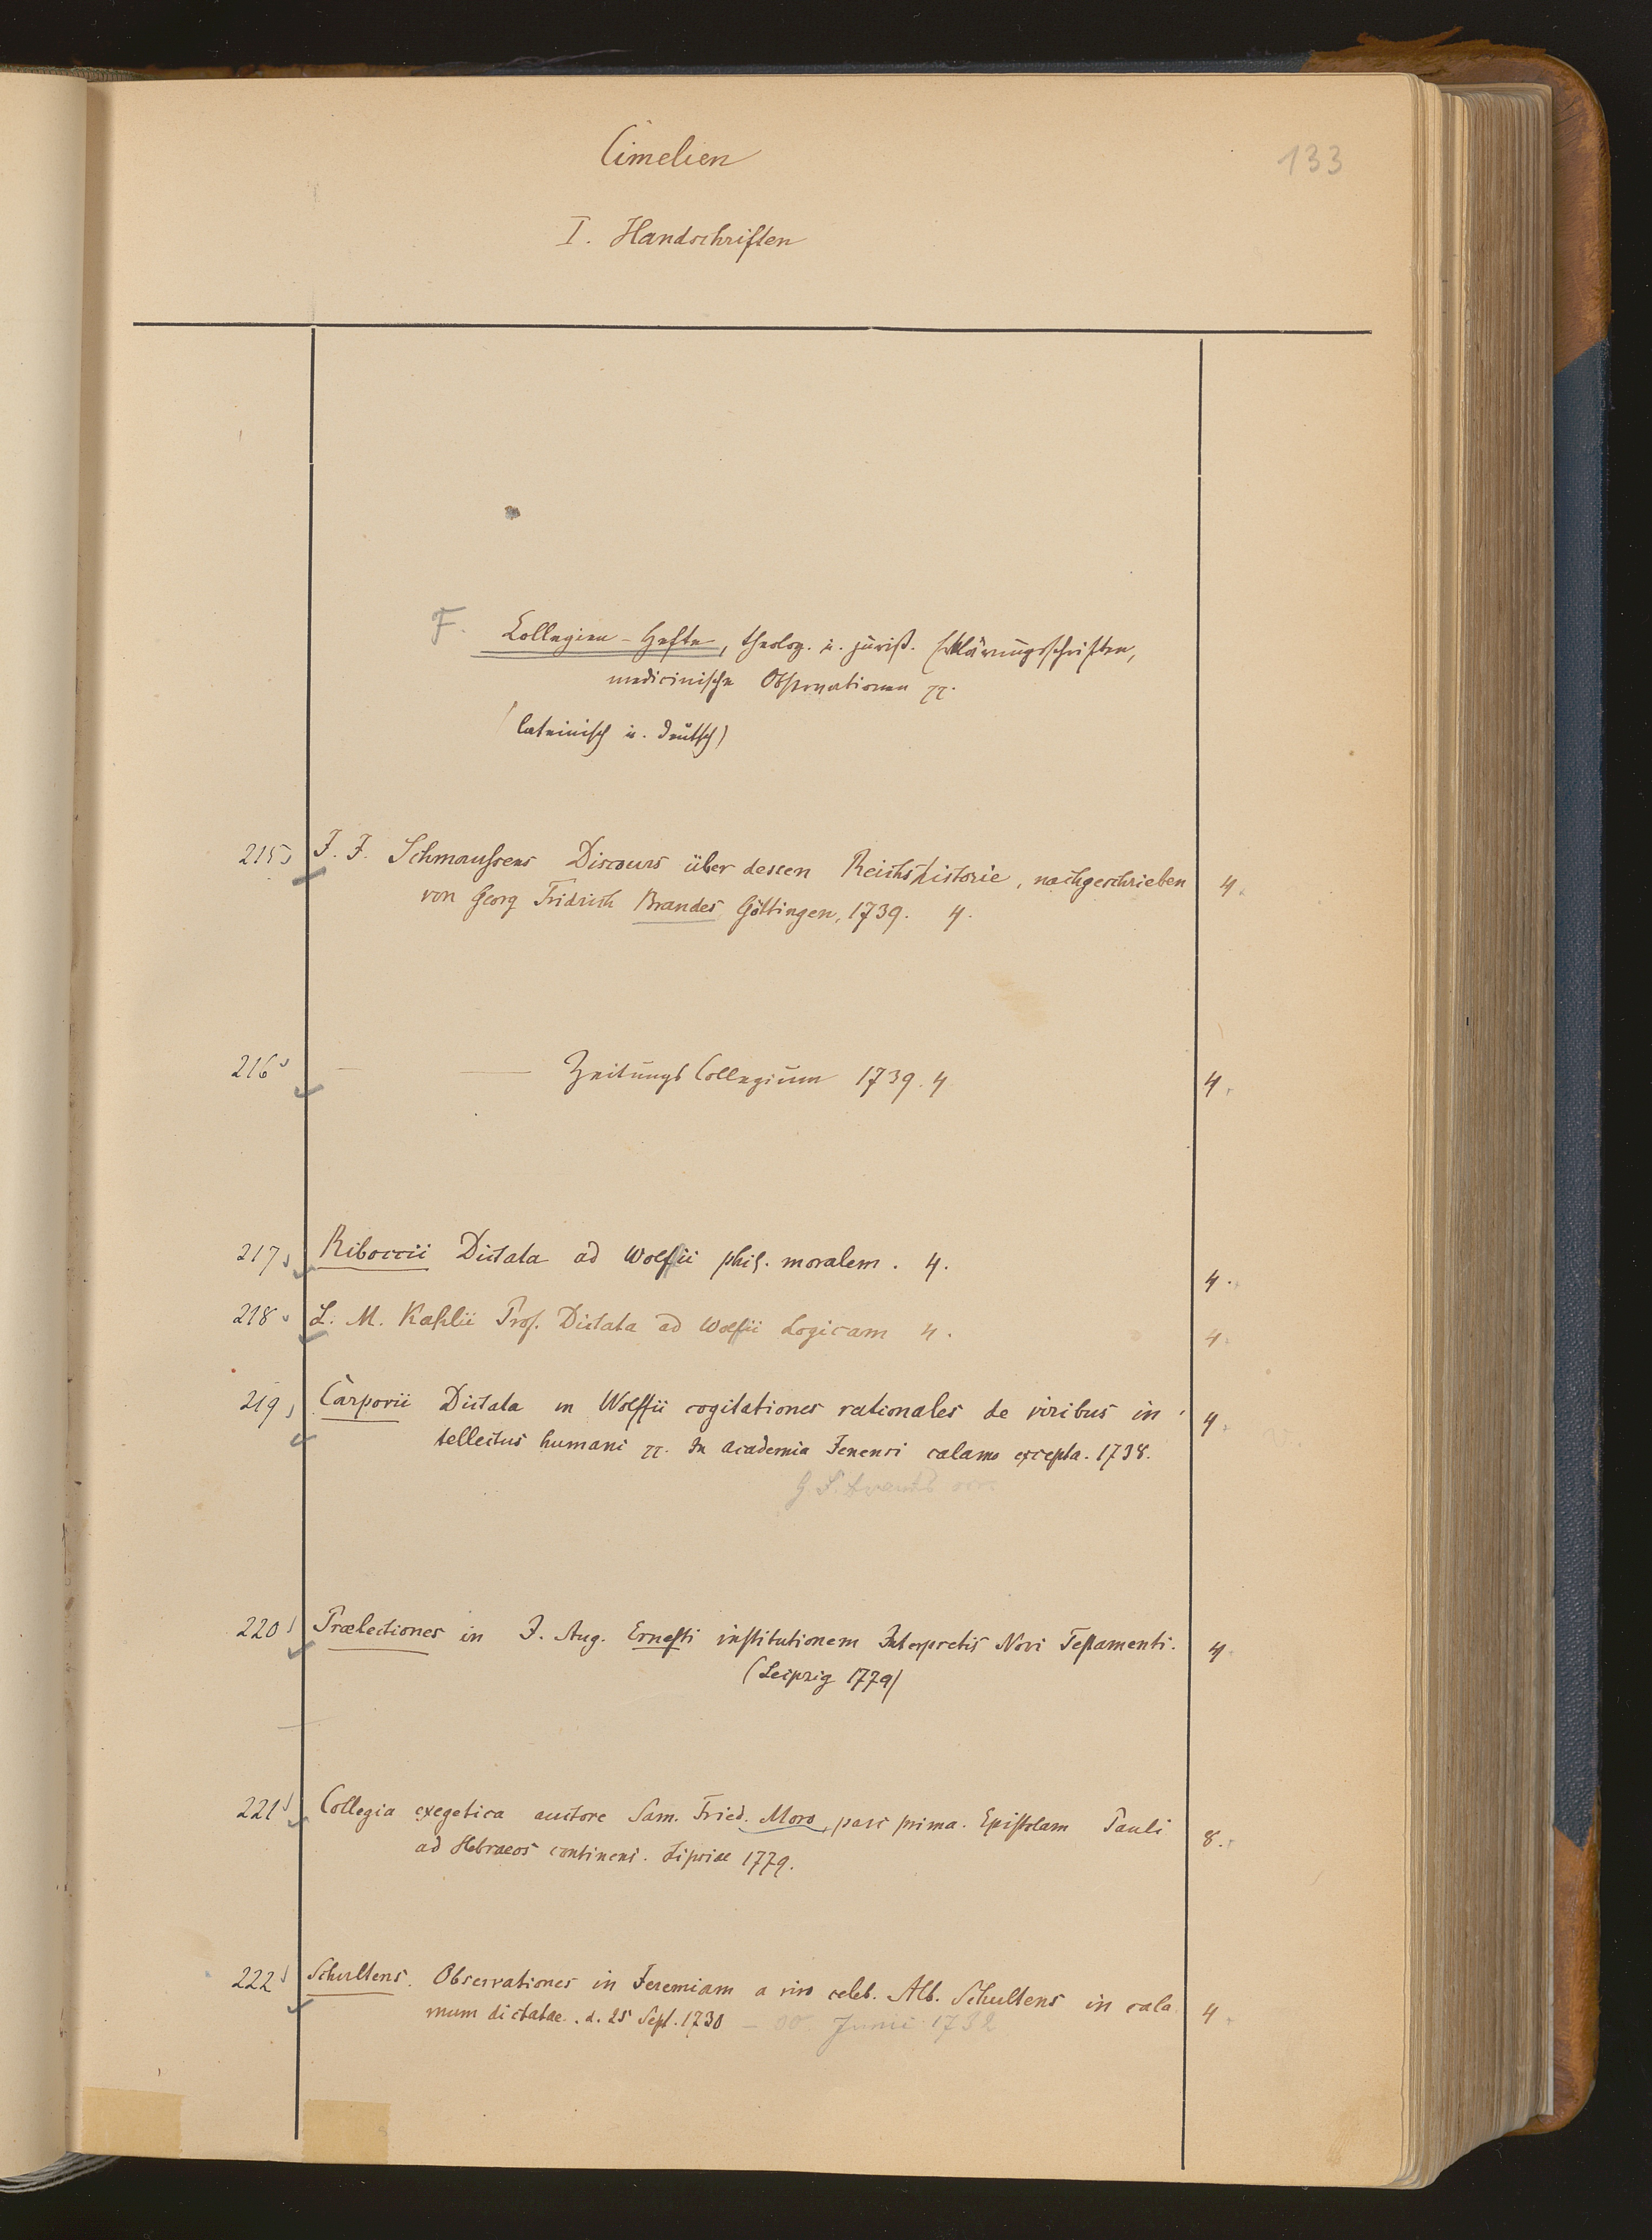 Cimelien
133
I. Handschriften
F. Collegien-Hefte, theolog. u. jurist. Erklärungsschriften,
medicinische Observationen
(lateinisch u. deutsch)
215 J. J. Schmaussens Discours über dessen Reichshistorie, nachgeschrieben 4.
von Georg Fridrich Brandes Göttingen, 1739. 4.
216 — — Zeitungs Collegium 1739. 4 4.
217 Riboccii Dictata ad Wolfii phil. moralem. 4. 4.
218 L. M. Kahlii Prof. Dictata ad Wolfii Logicam 4. 4.
219 Carpovii Dictata in Wolffii cogitationes rationales de viribus in 4.
tellectus humani In academia Jenensi calamo excepta. 1738.
G. F.
220 Prælectiones in J. Aug. Ernesti institutionem Interpretis Novi Testamenti. 4
(Leipzig 1779)
221 Collegia exegetica auctore Sam. Fried. Moro, pars prima. Epistolam Pauli 8.
ad Hebraeos continens. Lipsiae 1779.
222 Schultens. Observationes in Jeremiam a viro celeb. Alb. Schultens in cala 4.
mum dictatae. d. 25 Sept. 1730 — Junii 1732